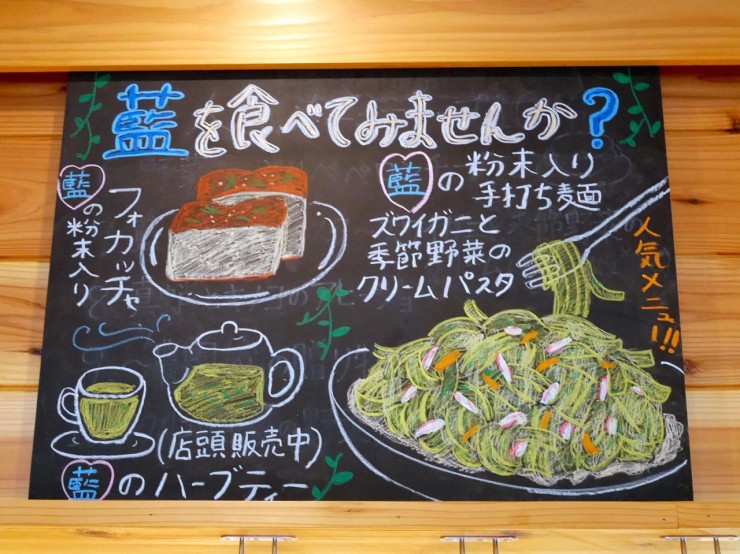 藍を食べてみませんか?
藍の粉末入り
フォカッチャ
藍の粉末入り
手打ち麺
ズワイガニと
季節野菜の
クリームパスタ
人気メニュー!!
(店頭販売中)
藍のハーブティー